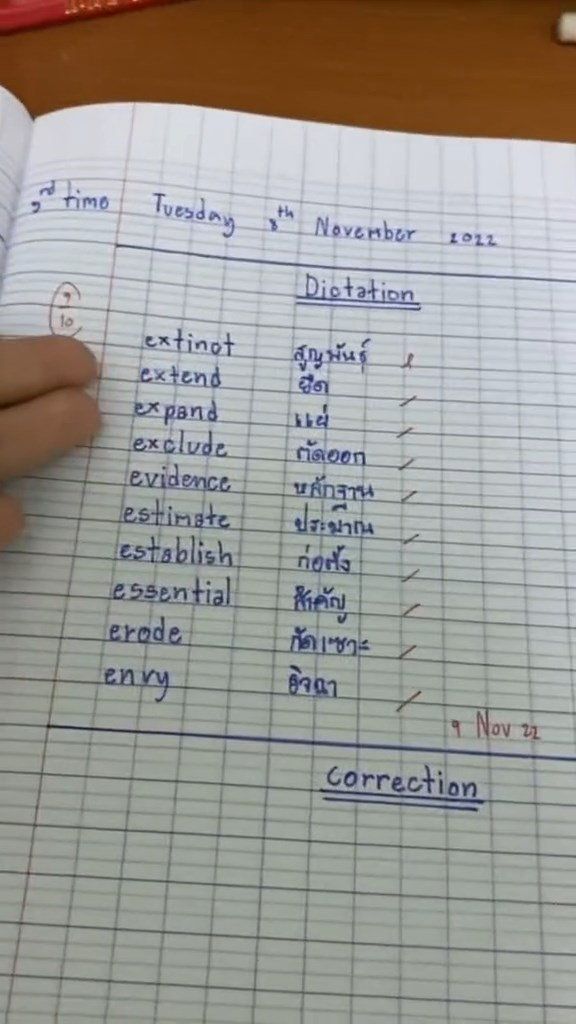 2nd time Tuesday 8th November 2022
Dictation
9
10
extinct สูญพันธุ์
extend ยืด
expand แผ่
exclude ตัดออก
evidence หลักฐาน
estimate ประมาณ
establish ก่อตั้ง
essential สำคัญ
erode กัดเซาะ
envy อิจฉา
9 Nov 22
Correction